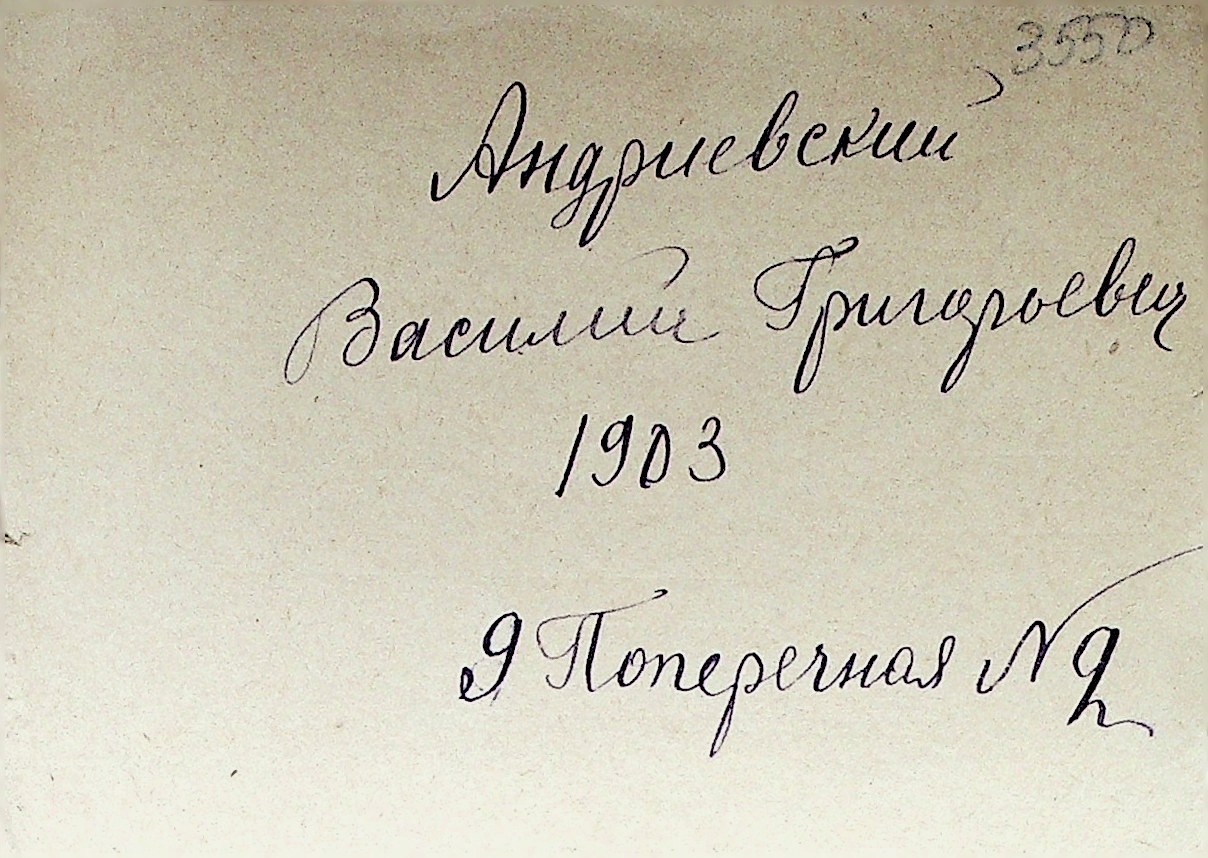 3550
Андриевский
Василий Григорьевич
1903
9 Поперечная № 9